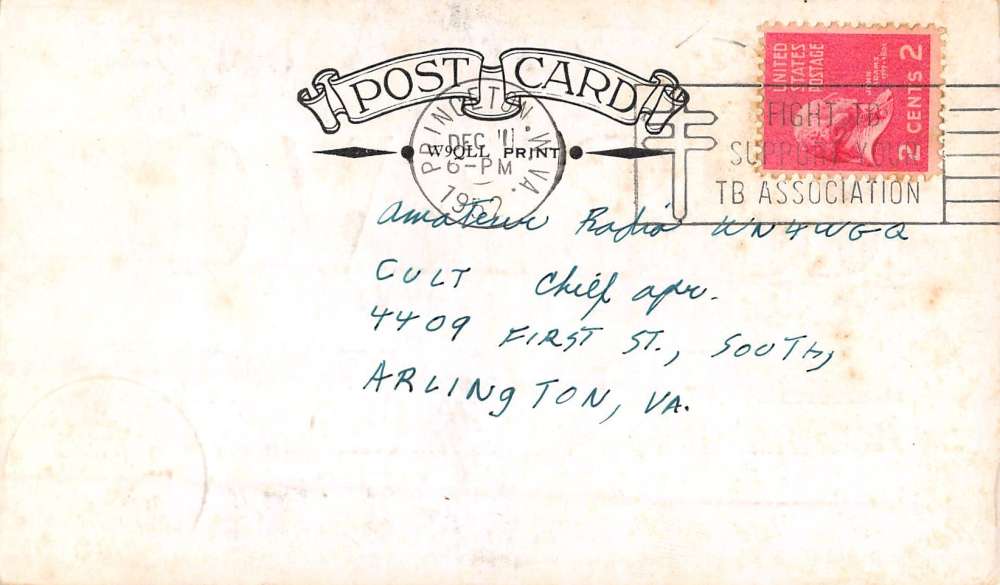 POST CARD
W9QLL PRINT
PRINCETON, W. VA.
DEC 11
6-PM
1952
UNITED
STATES
POSTAGE
JOHN
ADAMS
1797-1801
2 CENTS 2
FIGHT TB
SUPPORT YOUR
TB ASSOCIATION
Amateur Radio WN4WGQ
CULT Chief opr.
4409 FIRST ST., SOUTH,
ARLINGTON, VA.